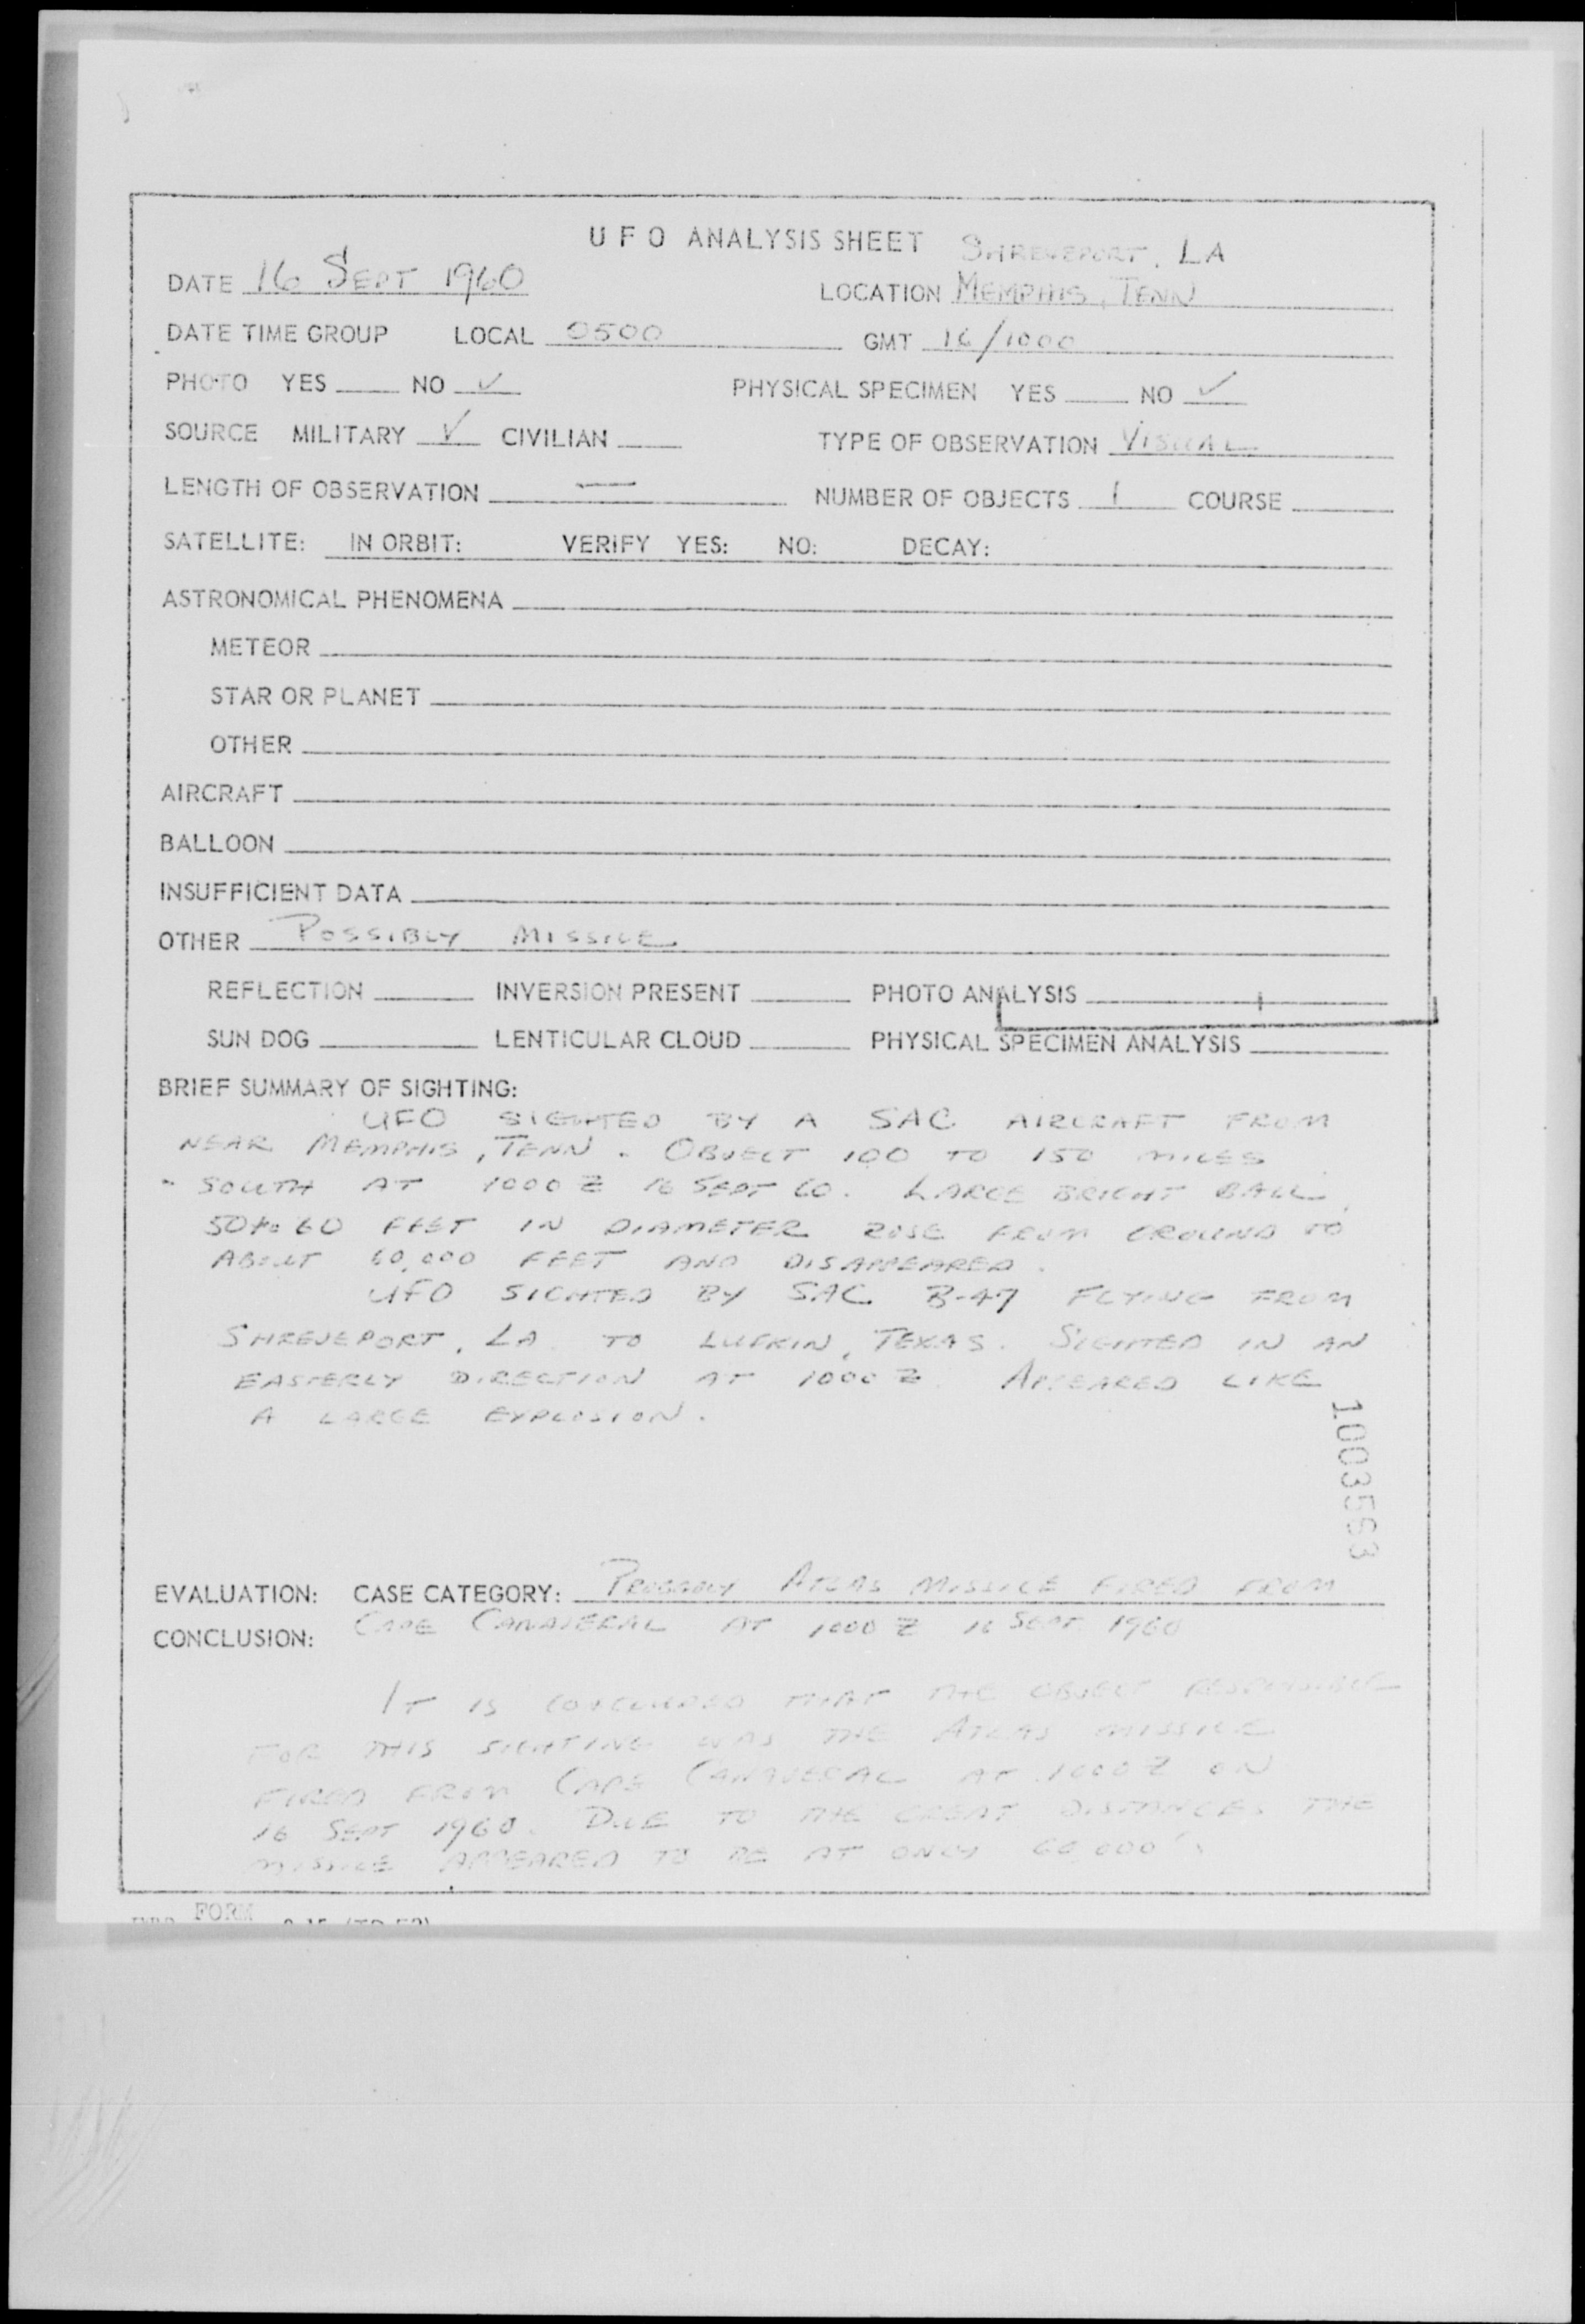 UFO ANALYSIS SHEET SHREVEPORT, LA
DATE 16 SEPT 1960 LOCATION MEMPHIS, TENN
DATE TIME GROUP LOCAL 0500 GMT 16/1000
PHOTO YES NO ✓ PHYSICAL SPECIMEN YES NO ✓
SOURCE MILITARY ✓ CIVILIAN TYPE OF OBSERVATION VISUAL
LENGTH OF OBSERVATION — NUMBER OF OBJECTS 1 COURSE
SATELLITE: IN ORBIT: VERIFY YES: NO: DECAY:
ASTRONOMICAL PHENOMENA
METEOR
STAR OR PLANET
OTHER
AIRCRAFT
BALLOON
INSUFFICIENT DATA
OTHER POSSIBLY MISSILE
REFLECTION INVERSION PRESENT PHOTO ANALYSIS
SUN DOG LENTICULAR CLOUD PHYSICAL SPECIMEN ANALYSIS
BRIEF SUMMARY OF SIGHTING:
UFO SIGHTED BY A SAC AIRCRAFT FROM
NEAR MEMPHIS, TENN. OBJECT 100 TO 150 MILES
SOUTH AT 1000Z 16 SEPT 60. LARGE BRIGHT BALL,
50 to 60 FEET IN DIAMETER ROSE FROM GROUND TO
ABOUT 60,000 FEET AND DISAPPEARED.
UFO SIGHTED BY SAC B-47 FLYING FROM
SHREVEPORT, LA TO LUFKIN, TEXAS. SIGHTED IN AN
EASTERLY DIRECTION AT 1000Z. APPEARED LIKE
A LARGE EXPLOSION.
1003553
EVALUATION: CASE CATEGORY: PROBABLY ATLAS MISSILE FIRED FROM
CONCLUSION: CAPE CANAVERAL AT 1000Z 16 SEPT 1960
IT IS CONCLUDED THAT THE OBJECT RESPONSIBLE
FOR THIS SIGHTING WAS THE ATLAS MISSILE
FIRED FROM CAPE CANAVERAL AT 1000Z ON
16 SEPT 1960. DUE TO THE GREAT DISTANCES THE
MISSILE APPEARED TO BE AT ONLY 60,000'.
FORM